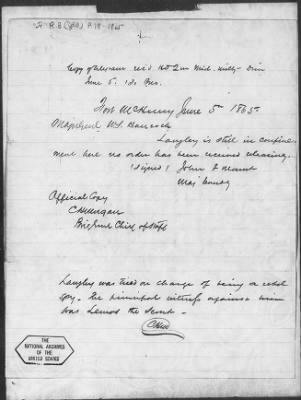 Copy of telegram rec'd Hd Qrs Mid. Mility Divn
June 5. 1.30 P.M.
Fort McHenry June 5th 1865
Maj Genl W. S. Hancock
Langley is still in confine-
ment here no order has been received releasing
(signed) John
Maj Comdg
Official Copy
C H Morgan
Brig Genl Chief of Staff
Langley was tried on charge of being a rebel
spy. The principal witness against him
was Lemos the Scout.
THE
NATIONAL ARCHIVES
OF THE
UNITED STATES